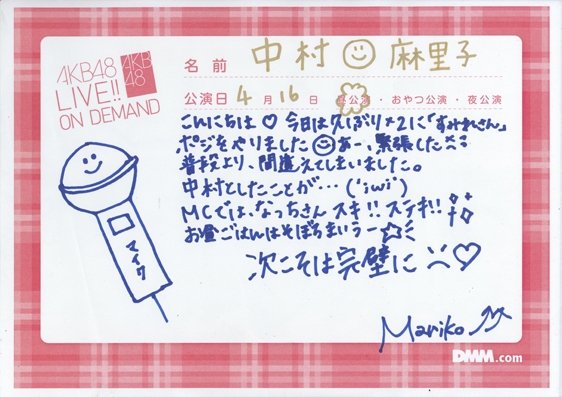 AKB48
LIVE!!
ON DEMAND
AKB
48
名前 中村 麻里子
公演日 4月16日 昼公演・おやつ公演・夜公演
こんにちは♡ 今日は久しぶり×2に「すみれさん」
ポジをやりました あー、緊張した
普段より、間違えてしまいました。
中村としたことが…(´;ω;`)
MCでは、なっちさんスキ!!ステキ!!
お昼ごはんはそぼろまいうー☆
次こそは完璧に ♡
マイク
Mariko
DMM.com